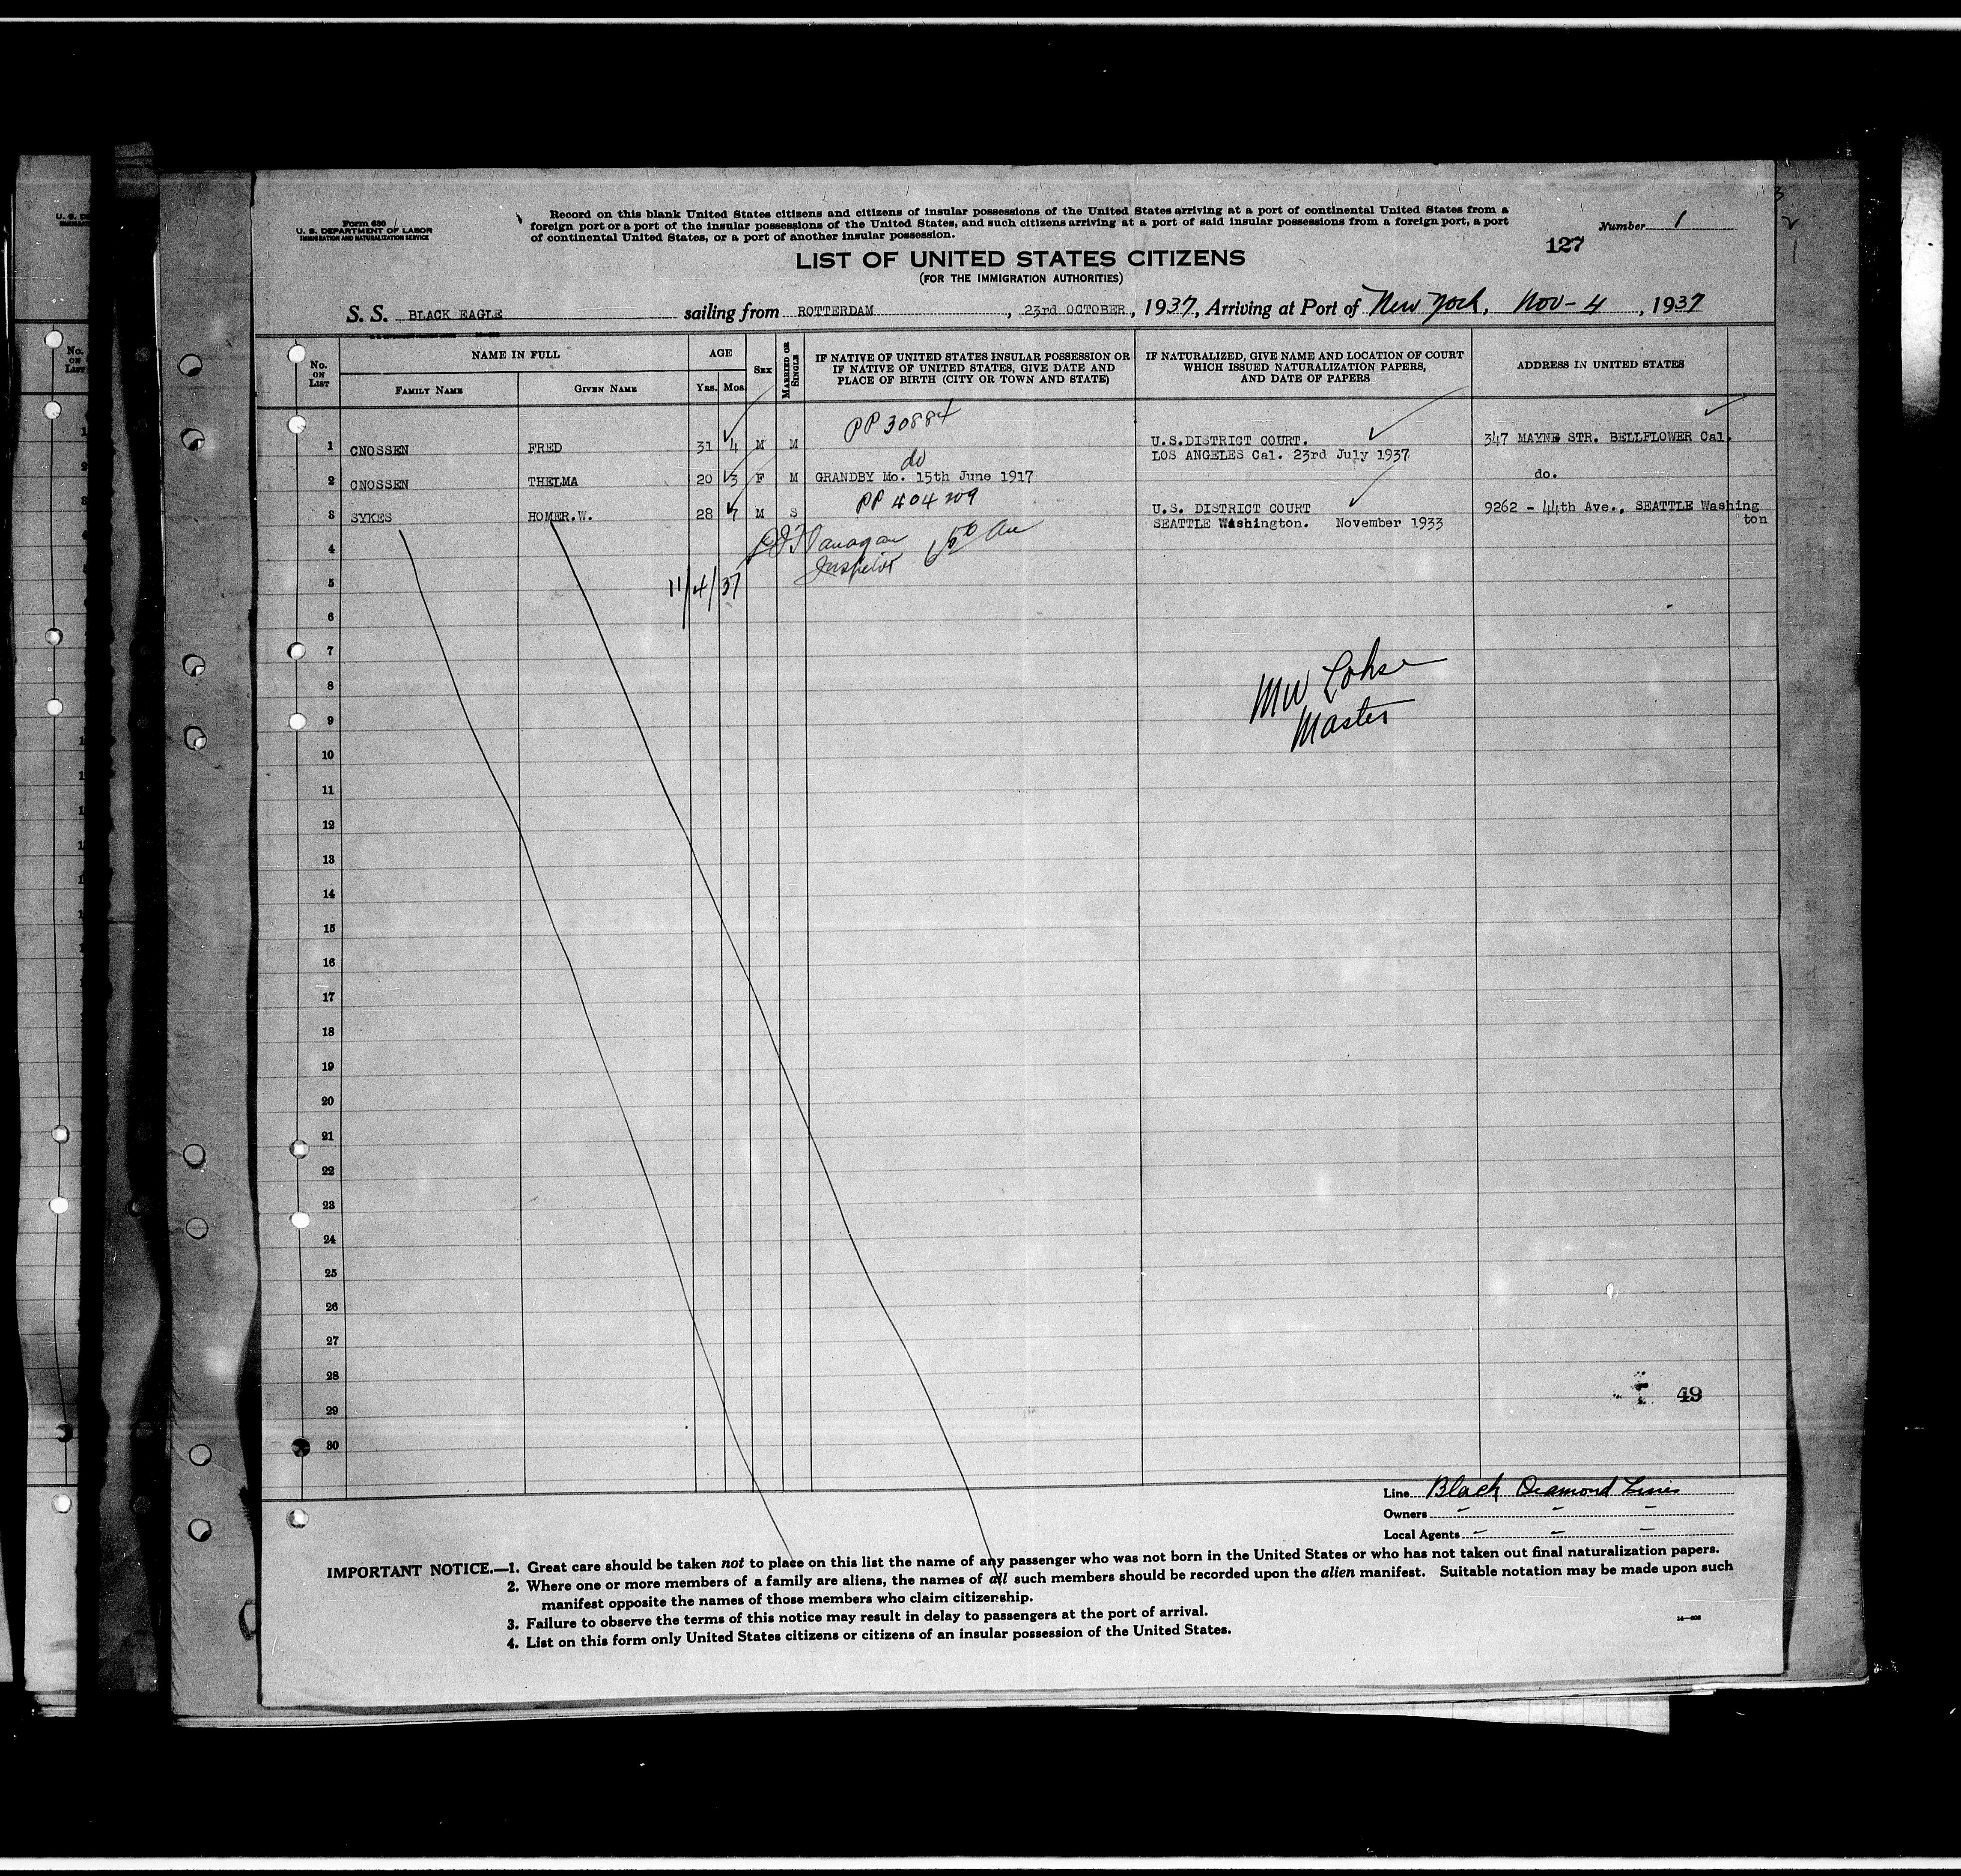 Form 630
U. S. DEPARTMENT OF LABOR
IMMIGRATION AND NATURALIZATION SERVICE
Record on this blank United States citizens and citizens of insular possessions of the United States arriving at a port of continental United States from a
foreign port or a port of the insular possessions of the United States, and such citizens arriving at a port of said insular possessions from a foreign port, a port
of continental United States, or a port of another insular possession.
Number 1
127
LIST OF UNITED STATES CITIZENS
(FOR THE IMMIGRATION AUTHORITIES)
S. S. BLACK EAGLE sailing from ROTTERDAM, 23rd OCTOBER, 1937, Arriving at Port of New York, Nov-4, 1937
No. ON LIST
NAME IN FULL
FAMILY NAME
GIVEN NAME
AGE
YRS. MOS.
SEX
MARRIED OR SINGLE
IF NATIVE OF UNITED STATES INSULAR POSSESSION OR
IF NATIVE OF UNITED STATES, GIVE DATE AND
PLACE OF BIRTH (CITY OR TOWN AND STATE)
IF NATURALIZED, GIVE NAME AND LOCATION OF COURT
WHICH ISSUED NATURALIZATION PAPERS,
AND DATE OF PAPERS
ADDRESS IN UNITED STATES
PP 30884
1 CNOSSEN FRED 31 4 M M U.S.DISTRICT COURT. 347 MAYNE STR. BELLFLOWER Cal.
LOS ANGELES Cal. 23rd July 1937
do
2 CNOSSEN THELMA 20 3 F M GRANDBY Mo. 15th June 1917 do.
PP 404209
3 SYKES HOMER.W. 28 7 M S U.S. DISTRICT COURT 9262 - 44th Ave., SEATTLE Washing
SEATTLE Washington. November 1933 ton
4
Flanagan
Inspector
5 11/4/37
6
7
8
MW Lohse
Master
9
10
11
12
13
14
15
16
17
18
19
20
21
22
23
24
25
26
27
28
49
29
30
Line Black Diamond Lines
Owners - - -
Local Agents - - -
IMPORTANT NOTICE.—1. Great care should be taken not to place on this list the name of any passenger who was not born in the United States or who has not taken out final naturalization papers.
2. Where one or more members of a family are aliens, the names of all such members should be recorded upon the alien manifest. Suitable notation may be made upon such
manifest opposite the names of those members who claim citizenship.
3. Failure to observe the terms of this notice may result in delay to passengers at the port of arrival.
4. List on this form only United States citizens or citizens of an insular possession of the United States.